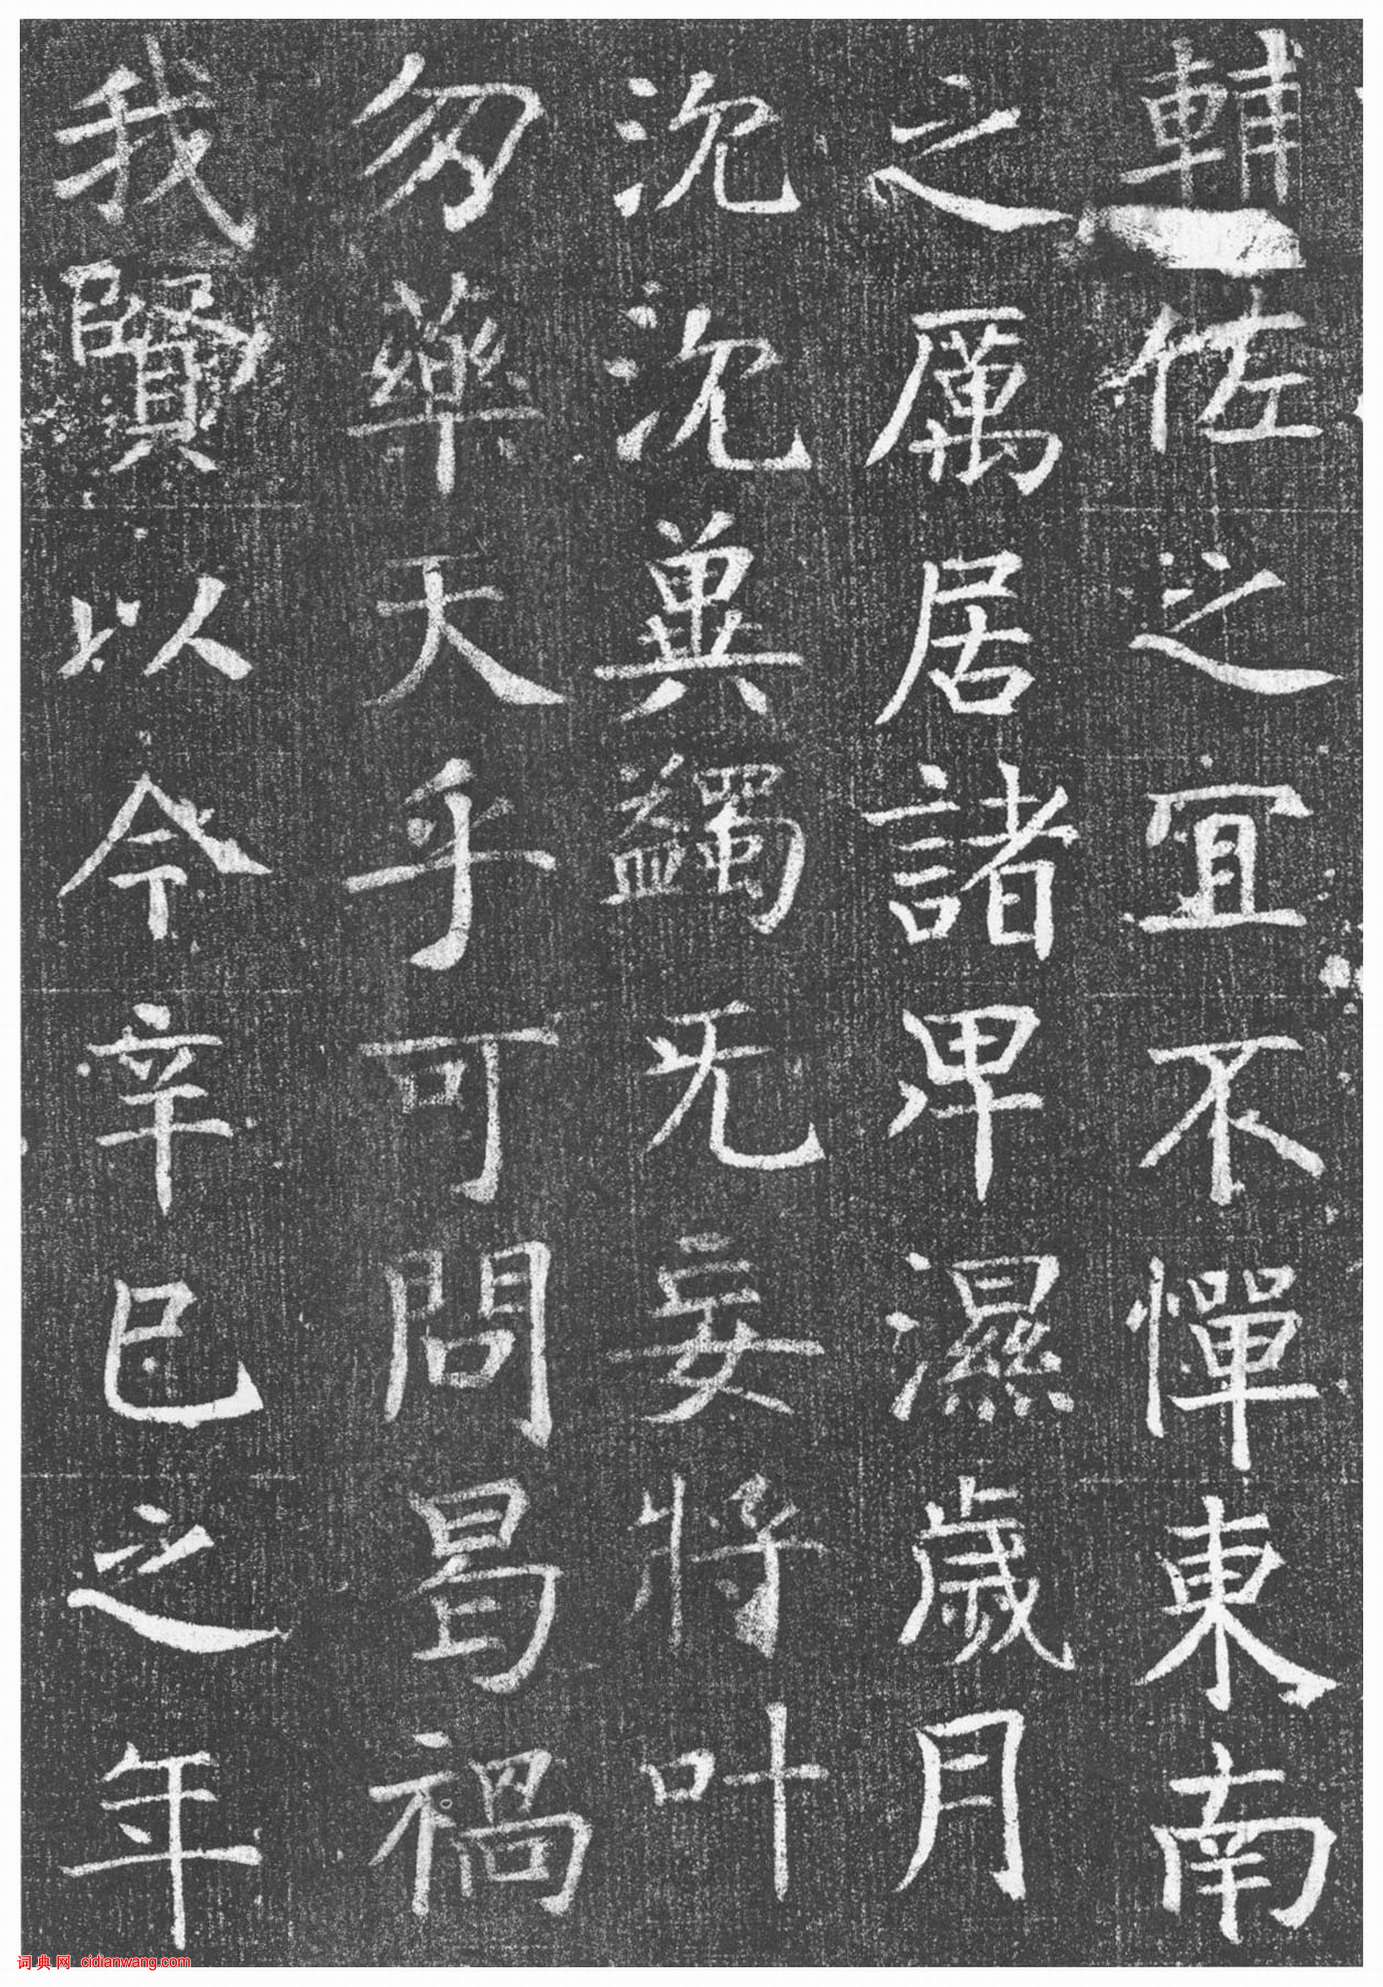 輔佐之宜不憚東南
之厲居諸卑濕歲月
沉沉巽蠲无妄將叶
勿藥天乎可問曷禍
我賢以今辛巳之年
词典网 cidianwang.com